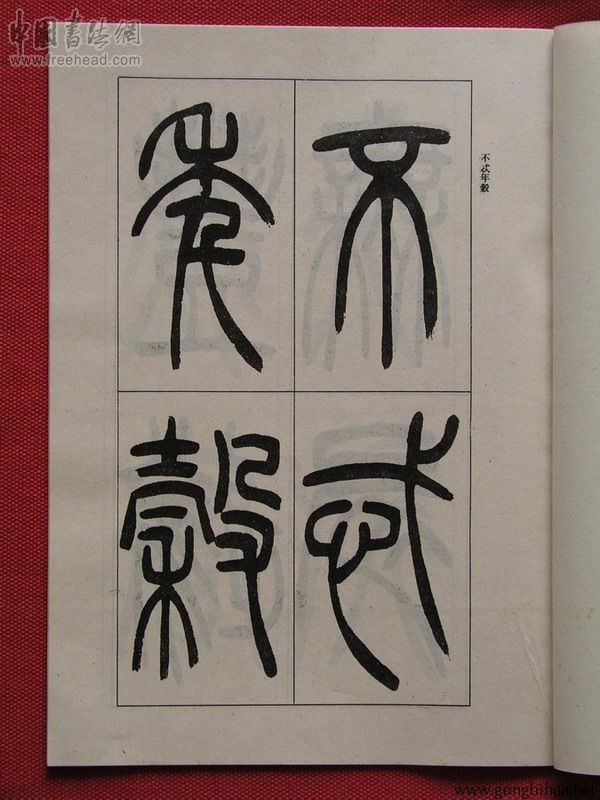 中國書法網
www.freehead.com
不忒年穀
不忒
年穀
www.gongbihua.net